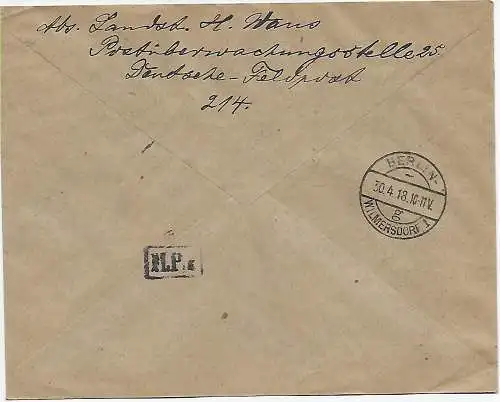 Abs. Landst. H. Waus
Postüberwachungsstelle 25
Deutsche-Feldpost
214.
BERLIN-
30.4.18.10-11V.
g
WILMERSDORF 1